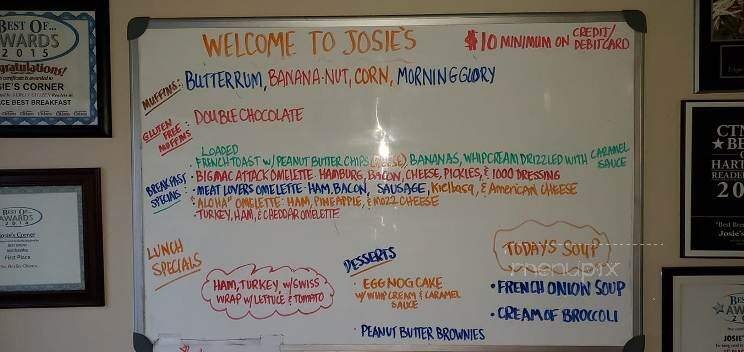 WELCOME TO JOSIE'S
$10 MINIMUM ON CREDIT/
DEBIT CARD
MUFFINS: BUTTERRUM, BANANA-NUT, CORN, MORNING GLORY
GLUTEN FREE MUFFINS: DOUBLE CHOCOLATE
BREAKFAST SPECIALS:
LOADED
FRENCH TOAST W/ PEANUT BUTTER CHIPS BANANAS, WHIPCREAM DRIZZLED WITH CARAMEL SAUCE
- BIG MAC ATTACK OMELETTE: HAMBURG, BACON, CHEESE, PICKLES, & 1000 DRESSING
- MEAT LOVERS OMELETTE: HAM, BACON, SAUSAGE, KIELBASA, & AMERICAN CHEESE
- "ALOHA" OMELETTE: HAM, PINEAPPLE, & MOZZ CHEESE
- TURKEY, HAM, & CHEDDAR OMELETTE
LUNCH
SPECIALS
HAM, TURKEY, W/ SWISS
WRAP W/ LETTUCE & TOMATO
DESSERTS
• EGG NOG CAKE
W/ WHIP CREAM & CARAMEL
SAUCE
• PEANUT BUTTER BROWNIES
TODAYS SOUP
menupix
• FRENCH ONION SOUP
• CREAM OF BROCCOLI
BEST OF...
AWARDS
2015
Congratulations!
JOSIE'S CORNER
BEST BREAKFAST
BEST OF
AWARDS
2013
Josie's Corner
First Place
CTN
★ BE
HART
READER
20
"Best Bre
Josie'
BES
AW
20
JOSIE'